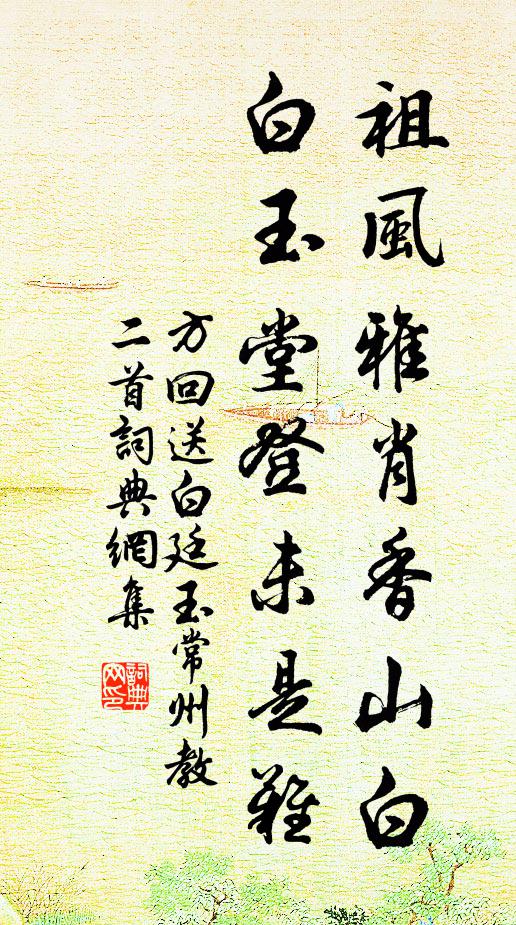 祖風雅肖香山白
白玉堂登未是難
方回送白廷玉常州教
二首詞典網集
詞典
网印